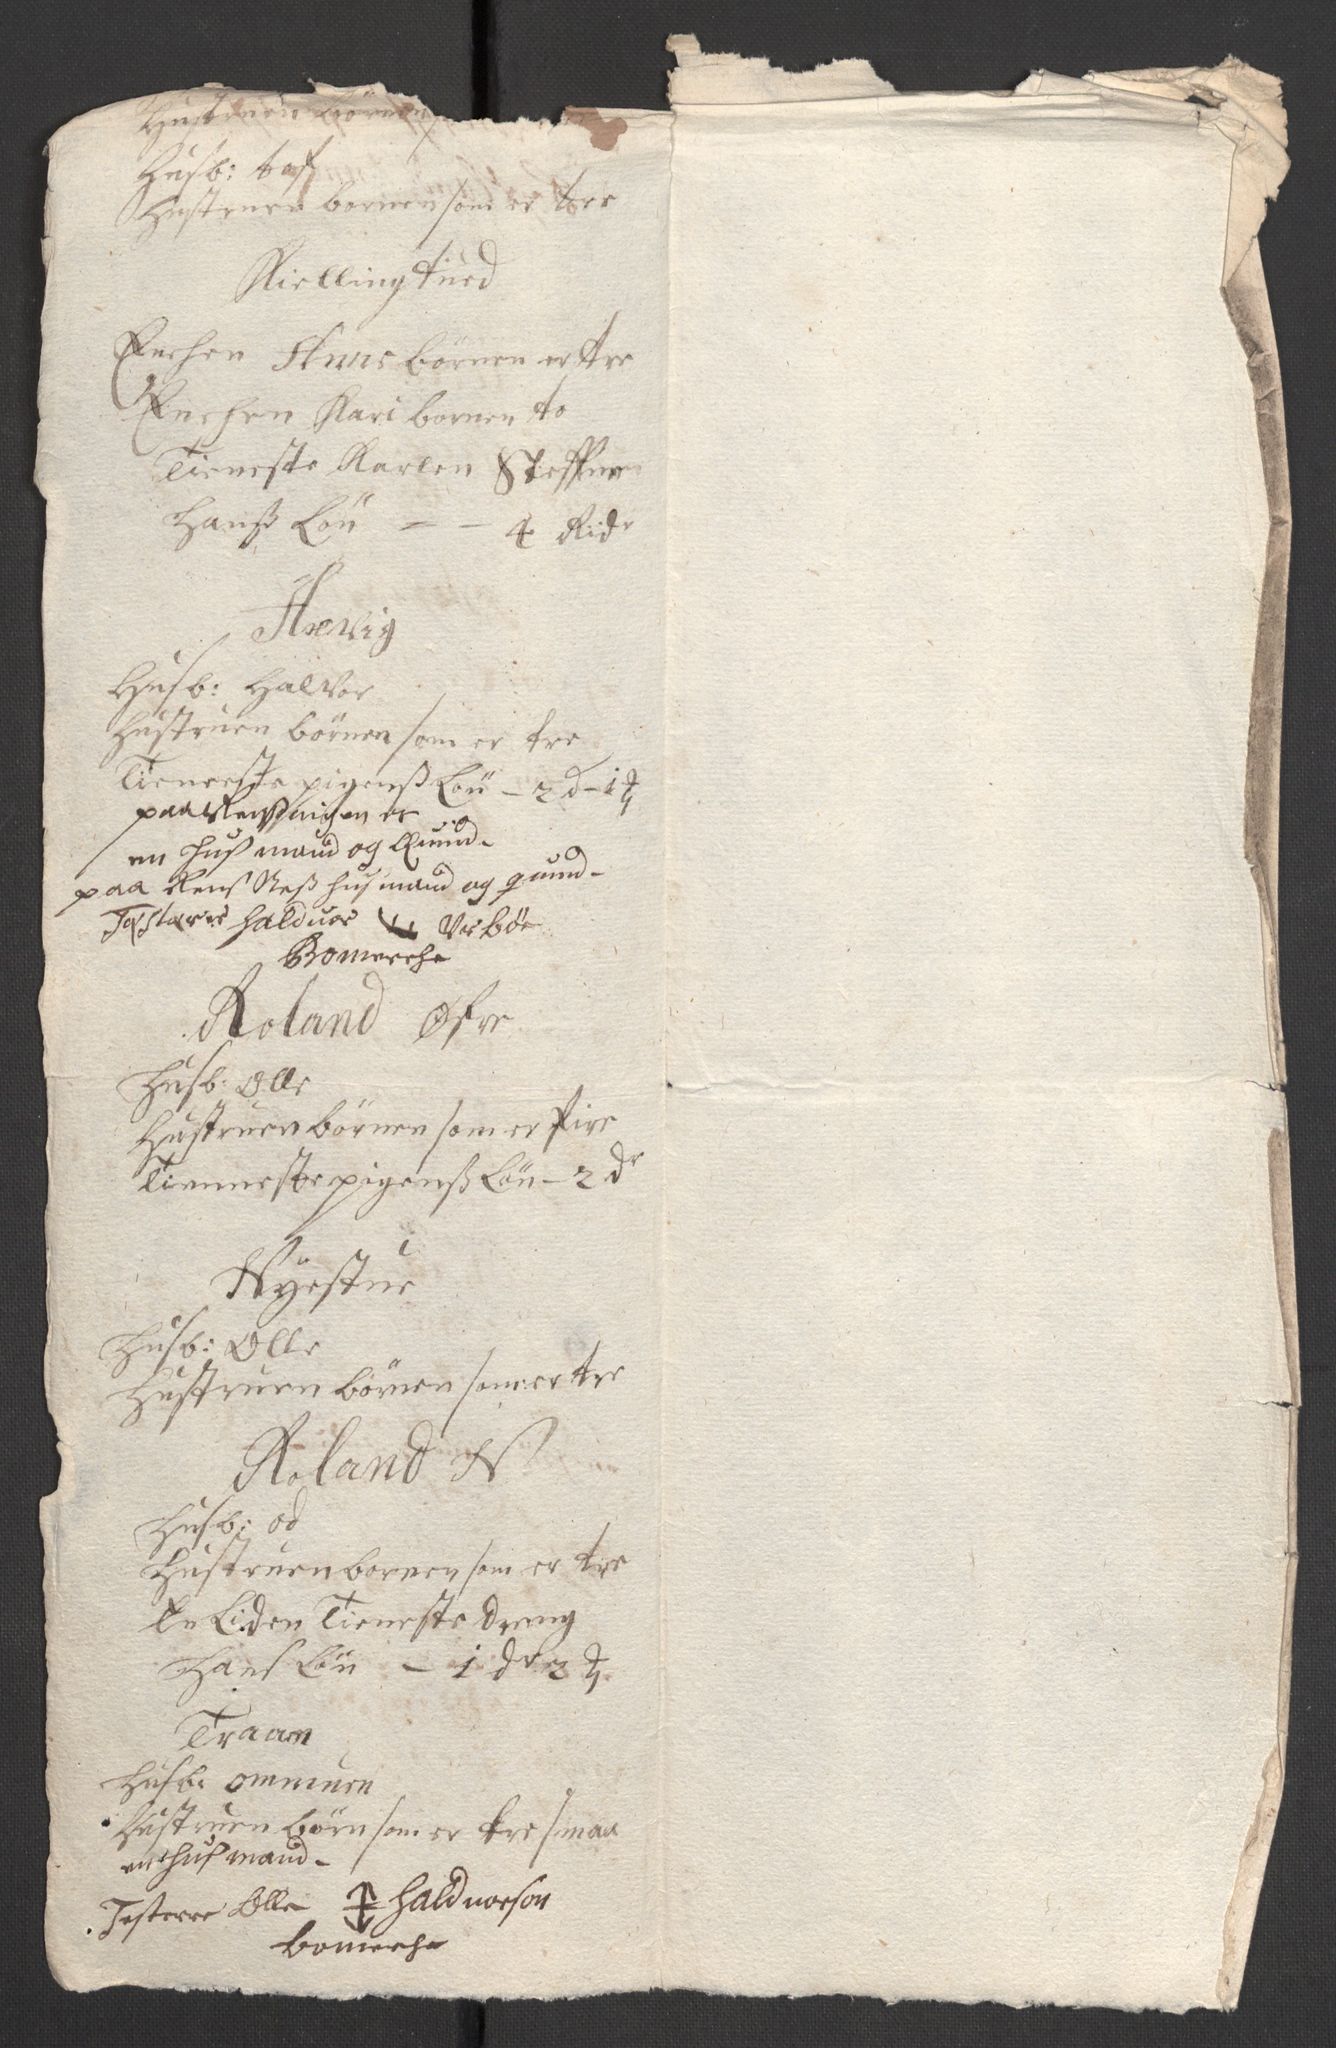 Hustruen børnen
Husb: tof
Hustruen bornen som er tre
Kielling tued
Enchen Anne børnen er tre
Enchen Kari bornen to
Tieneste Karlen Steffen
Hanß Løn - - 4 Rid
Røevig
Husb: Halvor
Hustruen børnen som er tre
Tieneeste pigenß Løn - 2 d - 1
paa er
en huß mand og quind
paa Neß husmand og quind
Testerer halduor Verbøe
Bomerche
Roland Øfre
Husb: Olle
Hustruen børnen som er fire
Tienneste pigenß Løn - 2 dr
Nyestue
Husb: Olle
Hustruen børnen som er tre
Roland N
Husb: od
Hustruen bornen som er tre
En Liden Tieneste dreng
Hans Løn - 1 dr 2
Traaen
Husb: ommuen
Hustruen børn som er tre smaa
en huß mand
Testerer Olle Halduorson
bomerche